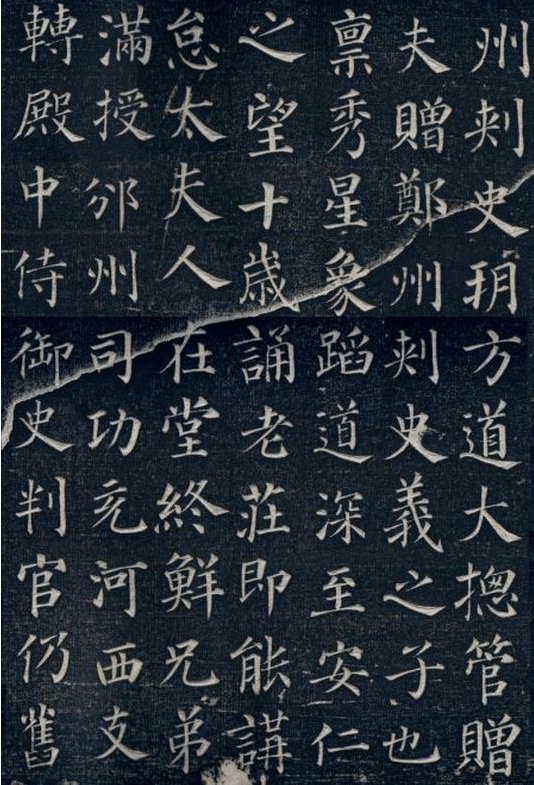 州刾史朔方道大摠管贈
夫贈鄭州刾史義之子也
禀秀星象蹈道深至安仁
之望十歲誦老莊即能講
怠太夫人在堂終鮮兄弟
滿授邠州司功充河西支
轉殿中侍御史判官仍舊